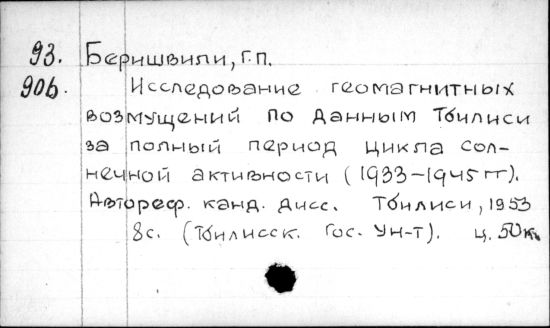 93. Беришвили, Г.П.
906. Исследование геомагнитных
возмущений по данным Тбилиси
за полный период цикла сол-
нечной активности (1933-1945 гг).
Автореф. канд. дисс. Тбилиси, 1953
8с. (Тбилисск. Гос. Ун-т). ц. 50к.